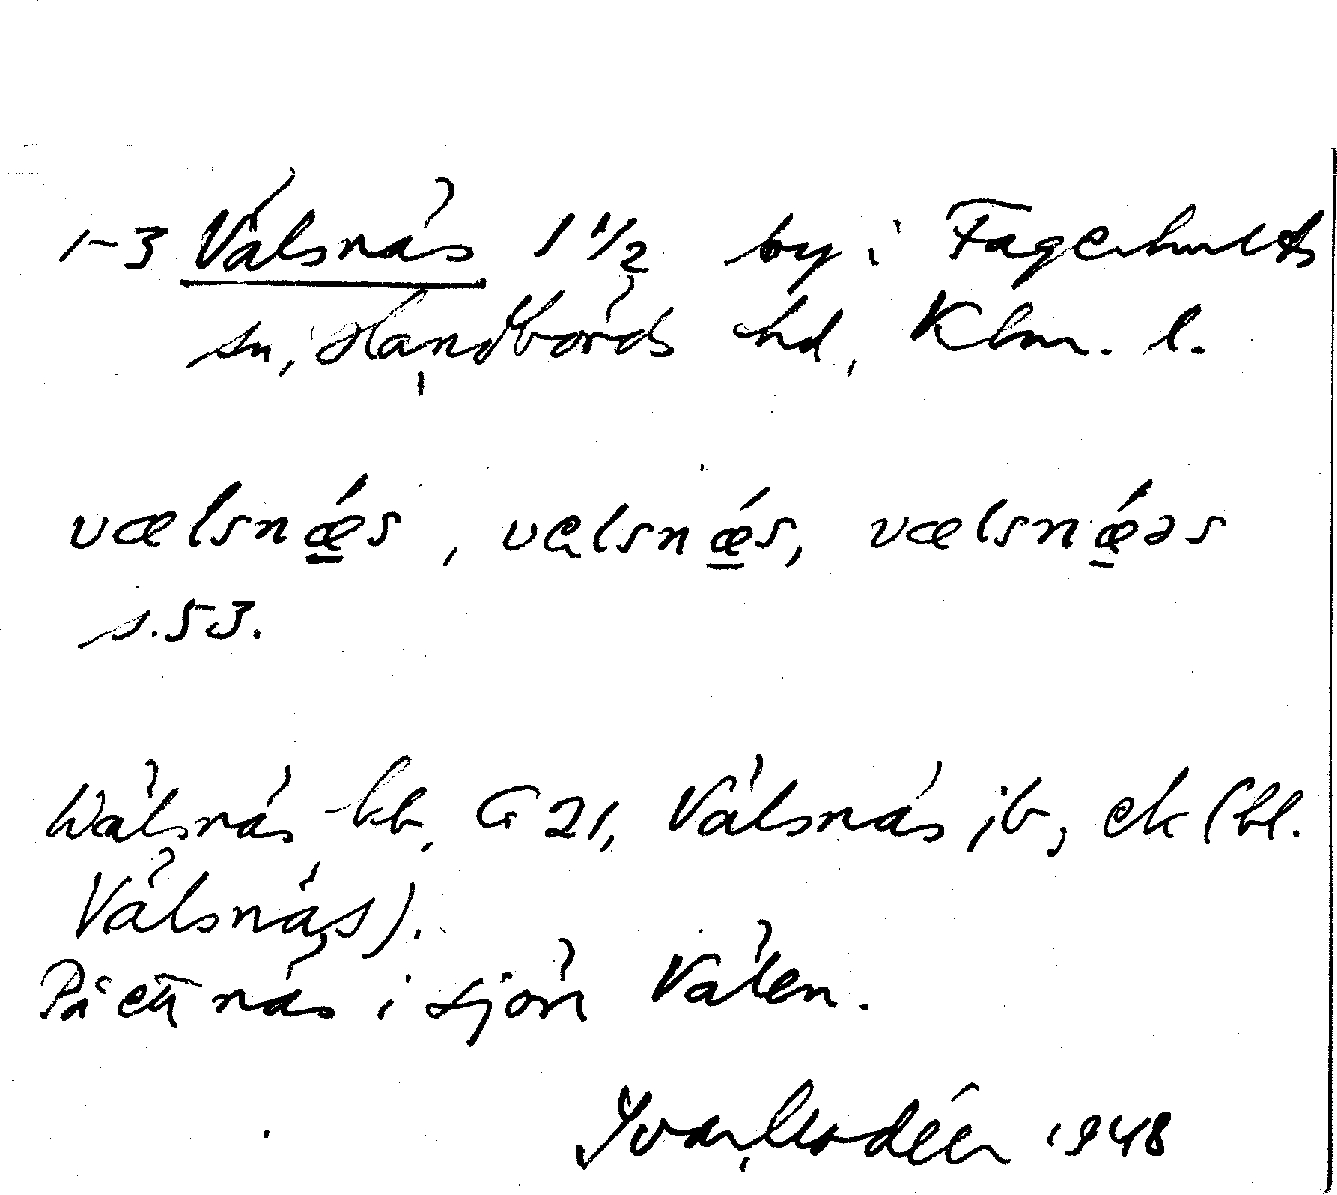 1-3 Välsnäs 1 1/2 by i Fagerhults
sn, Handbörds hd, Klm. l.
vælsnǽs, vælsnǽs, vælsnǽəs
s. 53.
Wälsnäs kb, G 21, Välsnäs jb, ek (bl.
Välsnäs).
På ett näs i sjön Välen.
Ivar Modéer 1948